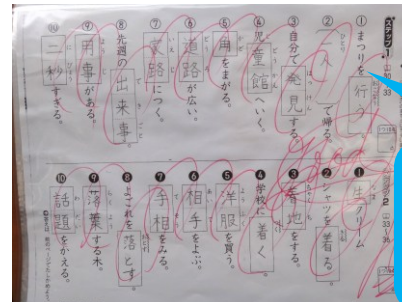 ステップ1
33
① まつりを行う。
② 一人で帰る。
③ 自分で発見する。
④ 児童館へいく。
⑤ 角をまがる。
⑥ 道路が広い。
⑦ 家路につく。
⑧ 先週の出来事。
⑨ 用事がある。
⑩ 二秒すぎる。
2
33
36
① 生クリーム
② シャツを着る。
③ 着地をする。
④ 学校に着く。
⑤ 洋服を買う。
⑥ 相手をよぶ。
⑦ 手相をみる。
⑧ よごれを落とす。
⑨ 落葉する木。
⑩ 話題をかえる。